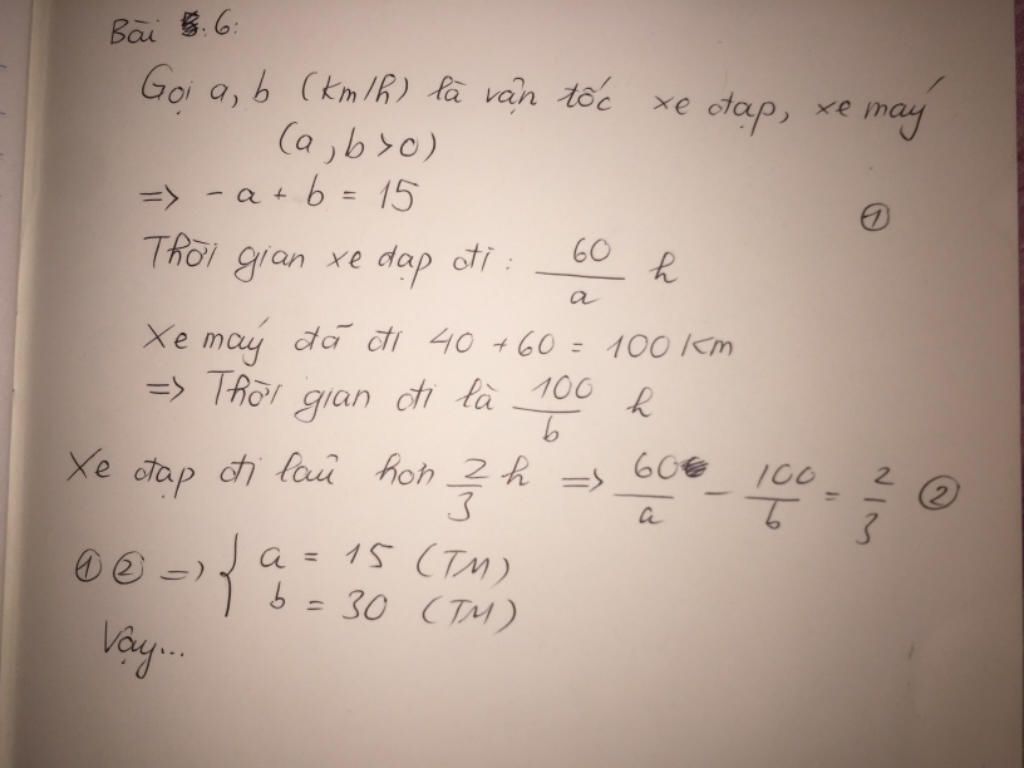 Bài 6:
Gọi a, b (km/h) là vận tốc xe đạp, xe máy
(a, b > 0)
=> - a + b = 15 ①
Thời gian xe đạp đi: 60/a h
Xe máy đã đi 40 + 60 = 100 Km
=> Thời gian đi là 100/b h
Xe đạp đi lâu hơn 2/3 h => 60/a - 100/b = 2/3 ②
① ② => { a = 15 (TM)
b = 30 (TM)
Vậy...